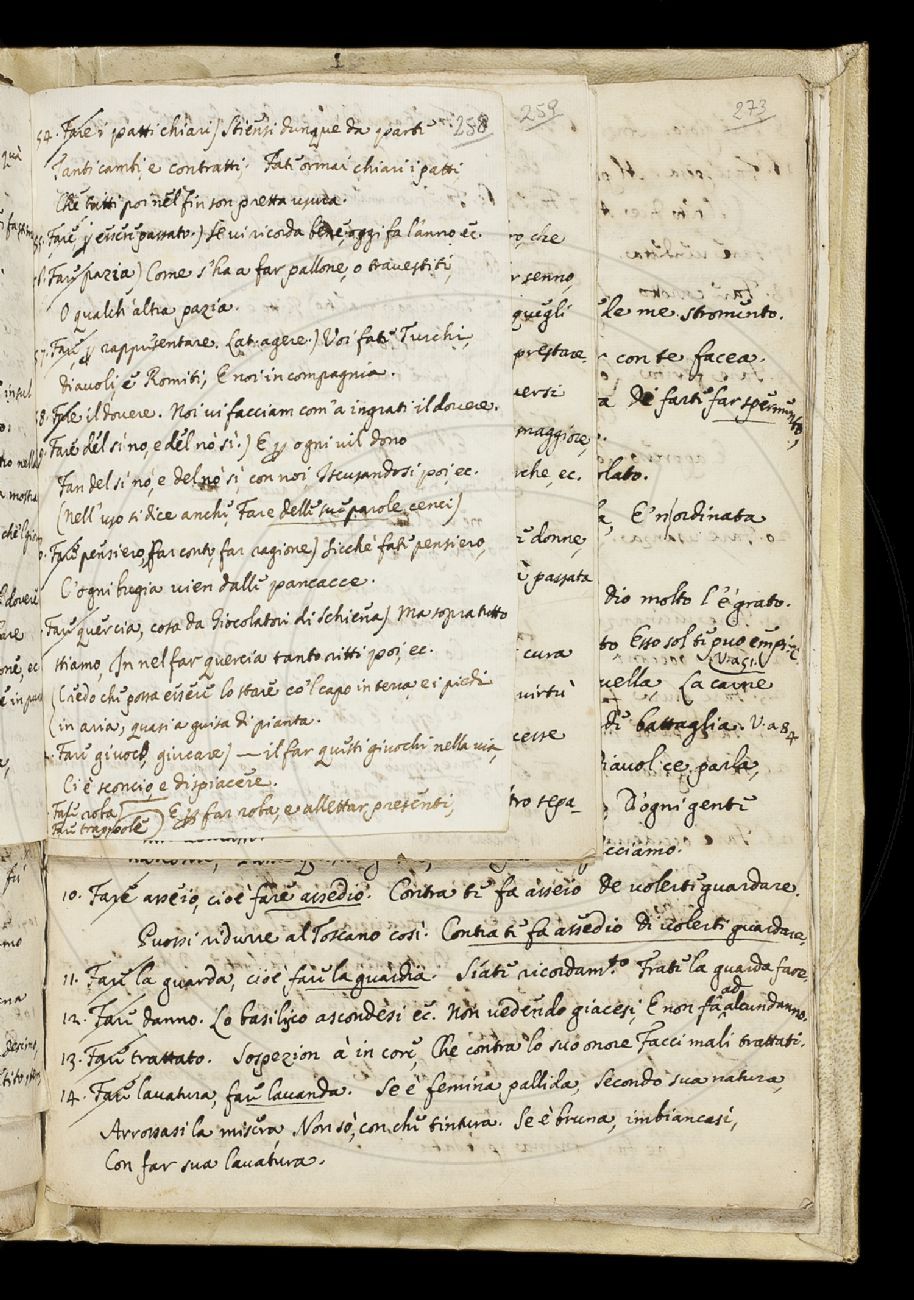 1
258
54. Fare i patti chiari) Stiensi dunque da parti
Tanti cambi, e contratti; Fati ormai chiari i patti
Che tutti poi nel fin son pretta usura.
Fare, esser passato.) Se vi ricorda bene, oggi fa l'anno, ec.
Fare pazia) Come s'ha a far pallone, o travestiti,
O qualch'altra pazia.
57. Fare, rappresentare. Lat. agere.) Voi fate Turchi,
diavoli, e Romiti, E noi in compagnia.
58. Fare il dovere. Noi vi facciam com'a ingrati il dovere.
Fare del sì no, e del nò sì.) E ogni vil dono
Fan del sì nò, e del nò sì, con noi Iscusandosi poi, ec.
(Nell'uso si dice anche, Fare delle sue parole, cenci)
Fare pensiero, far conto, far ragione) Sicchè fate pensiero,
C'ogni bugia vien dalle pancacce.
Fare quercia, cosa da Giocolatori di schiena) Ma sopra tutto
stiamo, In nel far quercia tanto ritti poi, ec.
(Credo che possa essere lo stare co'l capo in terra, e i piedi
(in aria, quasi a guisa di pianta.
Fare giuoco, giucare) — il far questi giuochi nella via,
Ci è sconcio, e dispiacere.
Fare roba
Fare trappole) E far roba, e allettar presenti,
259
ro, che
r senno,
quegli
prestare
versi
maggiore,
rche, ec.
donne,
passata
cura
virtù
cesse
tro sepa-
273
le me stromento.
con te facea.
a De farti far sperimento,
olato.
E' n'ordinata
dio molto l'è grato.
to Esso sol ti può empir
V. a 51.
uella, La carne
di battaglia. V. a 84
iavol ce parla,
D'ogni genti
cciamo.
10. Fare asseio, cioè fare assedio. Contra ti fa asseio De volerti guardare.
Puossi ridurre al Toscano così. Contra ti fa assedio di volerti guardare.
11. Fare la guarda, cioè fare la guardia. Siati ricordam.to Frati la guarda fare.
12. Fare danno. Lo basilico ascondesi ec. Non vedendo giacesi, E non fa ad alcun danno.
13. Fare trattato. Sospezion à in core, Che contra lo suo onore Facci mali trattati.
14. Fare lavatura, fare lavanda. Se è femina pallida, Secondo sua natura,
Arrossasi la misera, Non sò, con che tintura. Se è bruna, imbiancasi,
Con far sua lavatura.